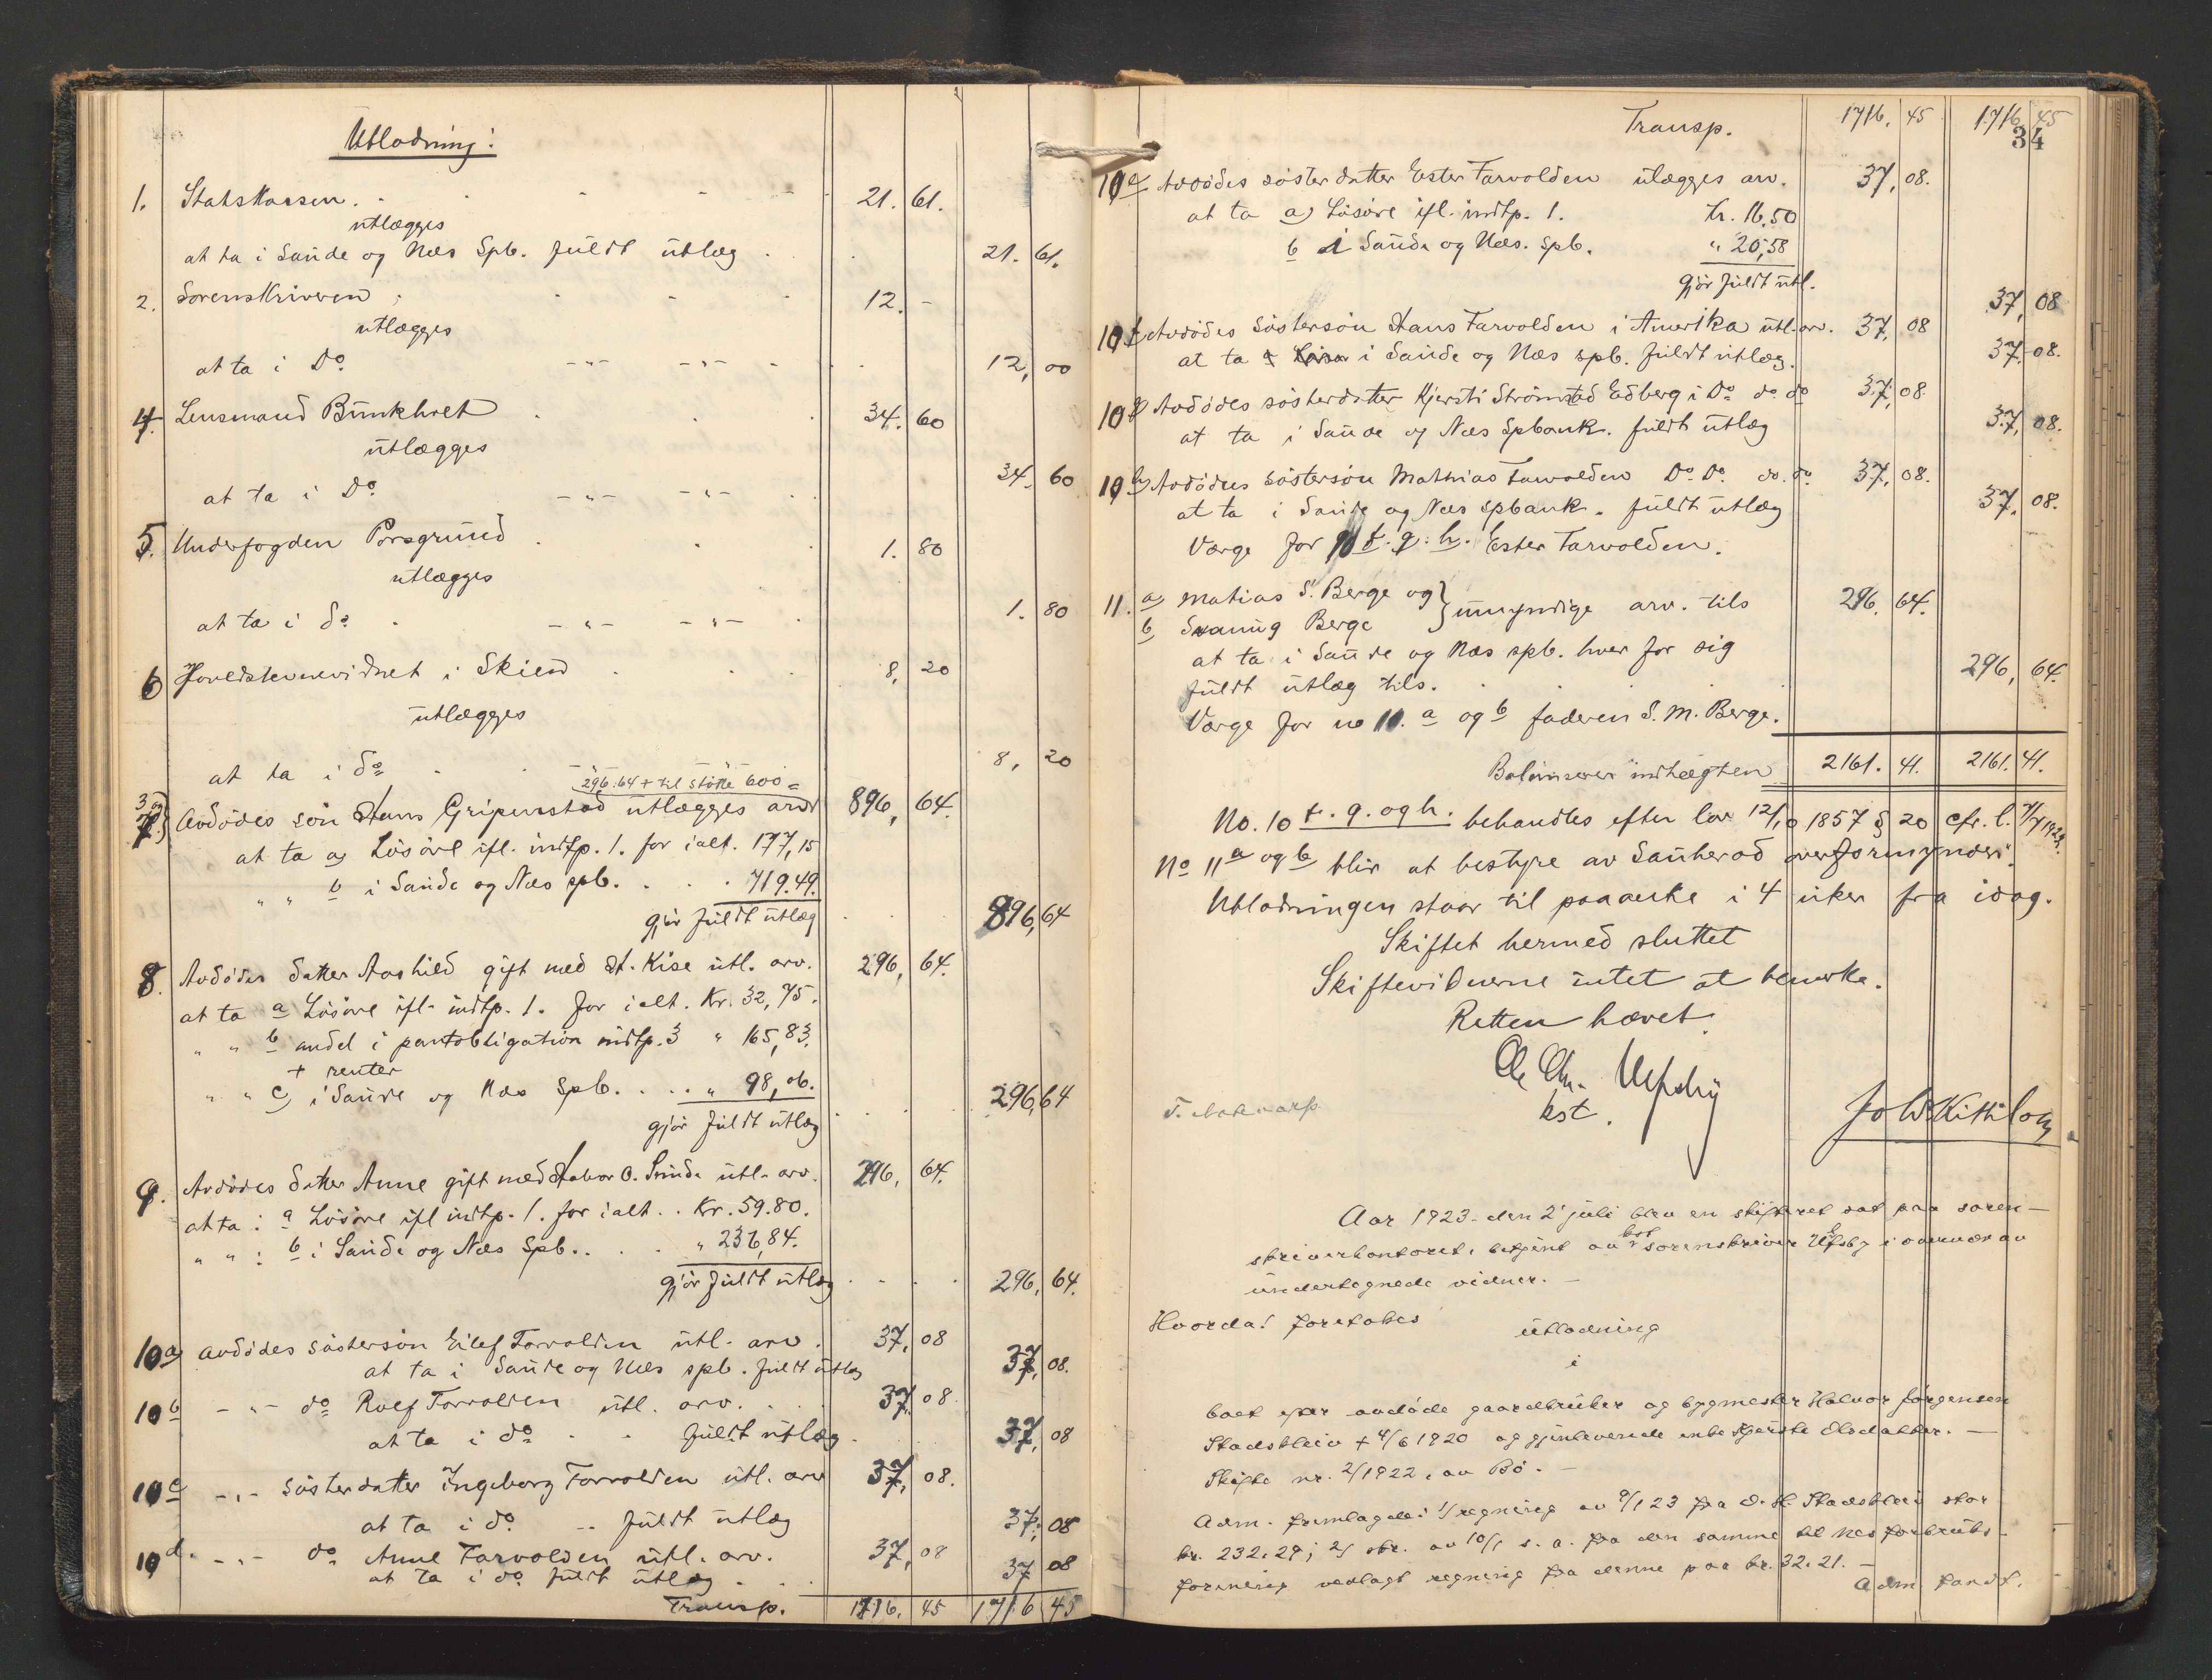 Utlodning:
1. Statskassen. 21. 61.
utlægges
at ta i Sande og Næs Spb. fuldt utlæg 21. 61.
2. Sorenskriveren 12. -
utlægges
at ta i Do -"- -"- 12, 00
4. Lensmand Bunkholt 34. 60
utlægges
at ta i Do -"- -"- 34. 60
5. Underfogden Porsgrund 1. 80
utlægges
at ta i do -"- -"- 1. 80
6 Hovedstevnevidnet i Skien 8, 20
utlægges
at ta i do " " 8, 20
296.64 + til støtte 600 =
7 Avdødes søn Hans Gripenstad utlægges arv 896, 64.
at ta a) Løsøre ifl. indtp. 1. for ialt. 177,15
" " b i Sande og Næs spb. . . . 719.49.
gjør fuldt utlæg 896,64
8. Avdødes datter Aashild gift med H. Kise utl. arv. 296, 64.
at ta a Løsøre ifl. indtp. 1. for ialt. Kr. 32,75.
" " b andel i pantobligation indtp. 3 " 165,83.
+ renter
" " c) i Sande og Næs Spb. . . . " 98,06.
gjør fuldt utlæg 296,64
9. Avdødes datter Anne gift med Halvor O. Sunde utl. arv. 296, 64.
at ta: a Løsøre ifl indtp. 1. for ialt. . Kr. 59.80.
" " : b i Sande og Næs Spb. . . . " 236,84.
gjør fuldt utlæg 296, 64.
10a) avdødes søstersøn Eilef Tarvolden utl. arv. 37, 08
at ta i Sande og Næs spb. fuldt utlæg 37, 08.
10b -"- do Rolf Tarvolden utl. arv. 37, 08
at ta i do . . fuldt utlæg 37, 08
10c -"- Søsterdatter Ingeborg Tarvolden utl. arv 37, 08.
at ta i do .. fuldt utlæg 37, 08
10d. -"- do Anne Tarvolden utl. arv. 37, 08
at ta i do fuldt utlæg 37 08
Transp. 1716, 45 1716 45
Transp. 1716, 45 1716, 45
34
10e Avdødes søsterdatter Ester Tarvolden utlægges arv. 37, 08.
at ta a) Løsøre ifl. indtp. 1. Kr. 16,50
b i Sande og Næs. Spb. " 20,58
gjør fuldt utl. 37, 08
10f Avdødes Søstersøn Hans Tarvolden i Amerika utl. arv. 37, 08
at ta i Sande og Næs spb. fuldt utlæg. 37. 08.
10g Avdødes søsterdatter Kjersti Strømstad Edberg i Do do do 37, 08.
at ta i Sande og Næs Spbank. fuldt utlæg 37, 08.
10h) Avdødes søstersøn Mathias Tarvolden Do. Do. do. do 37, 08.
at ta i Sande og Næs Spbank. fuldt utlæg 37, 08.
Værge for 10 f. g. h. Ester Tarvolden.
11. a) Matias S. Berge og } umyndige arv. tils 296, 64.
b) Svanug Berge
at ta i Sande og Næs spb. hver for sig
fuldt utlæg tils. 296, 64.
Værge for no 11. a og b faderen S. M. Berge.
Balanserer indtægten 2161. 41. 2161. 41.
No. 10 f. g. og h. behandles efter lov 12/10 1857 § 20 cfr. l.
No 11 a og b blir at bestyre av Sauherad overformynderi.
Utlodningen staar til paaanke i 4 uker fra idag.
Skiftet hermed sluttet
Skiftevidnerne intet at bemerke.
Retten hævet.
kst.
Aar 1923 den 2 juli blev en skifteret sat paa soren-
skriverkontoret, betjent av kst sorenskriver Ulfsby i overvær av
undertegnede vidner. -
Hvorda! foretokes
utlodning
i
boet efter avdøde gaardbruker og bygmester Halvor Jørgensen
Stadskleiv + 4/6 1920 og gjenlevende enke Kjerstie Olsdatter. -
Skifte nr. 2/1922, av Bø. -
Adm. fremlagde: 1/ regning av 9/1 23 fra O. H. Stadskleiv stor
kr. 232.29; 2/ skr. av 10/1 s. a. fra den samme til Nes forbruks-
forening vedlagt regning fra denne paa kr. 32.21. -
Adm. fandt,